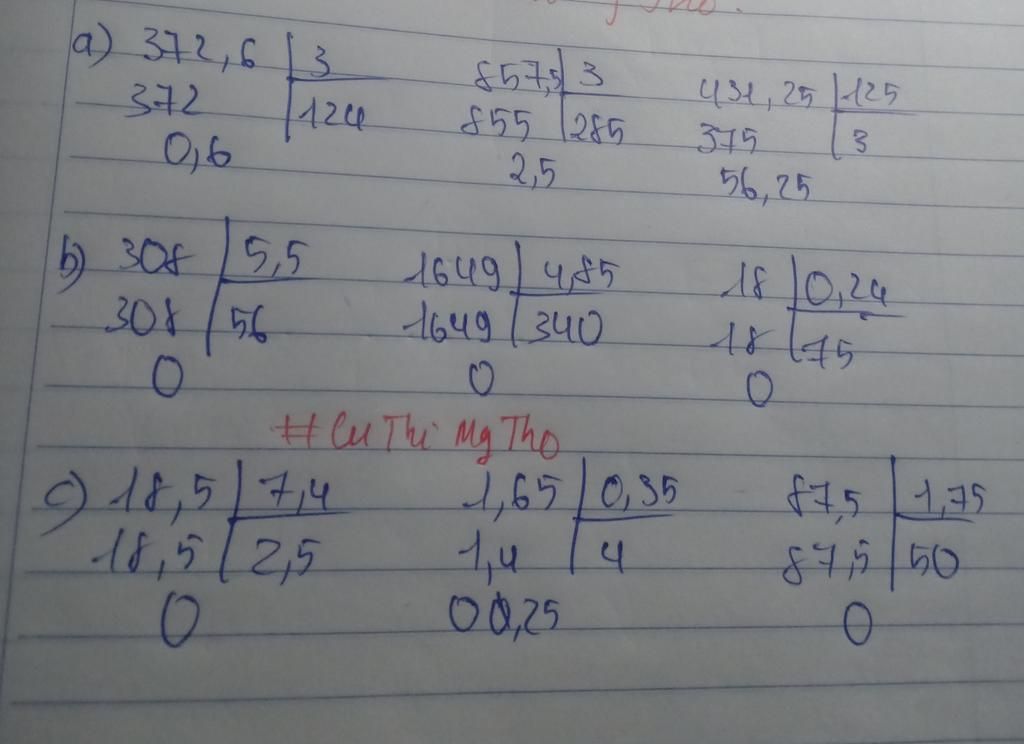 a) 372,6 3 857,5 3 431,25 125
372 124 855 285 375 3
0,6 2,5 56,25
b) 308 5,5 1649 4,85 18 0,24
308 56 1649 340 18 75
0 0 0
#Cu Thi Mg Tho
c) 18,5 7,4 1,65 0,35 87,5 1,75
18,5 2,5 1,4 4 87,5 50
0 00,25 0